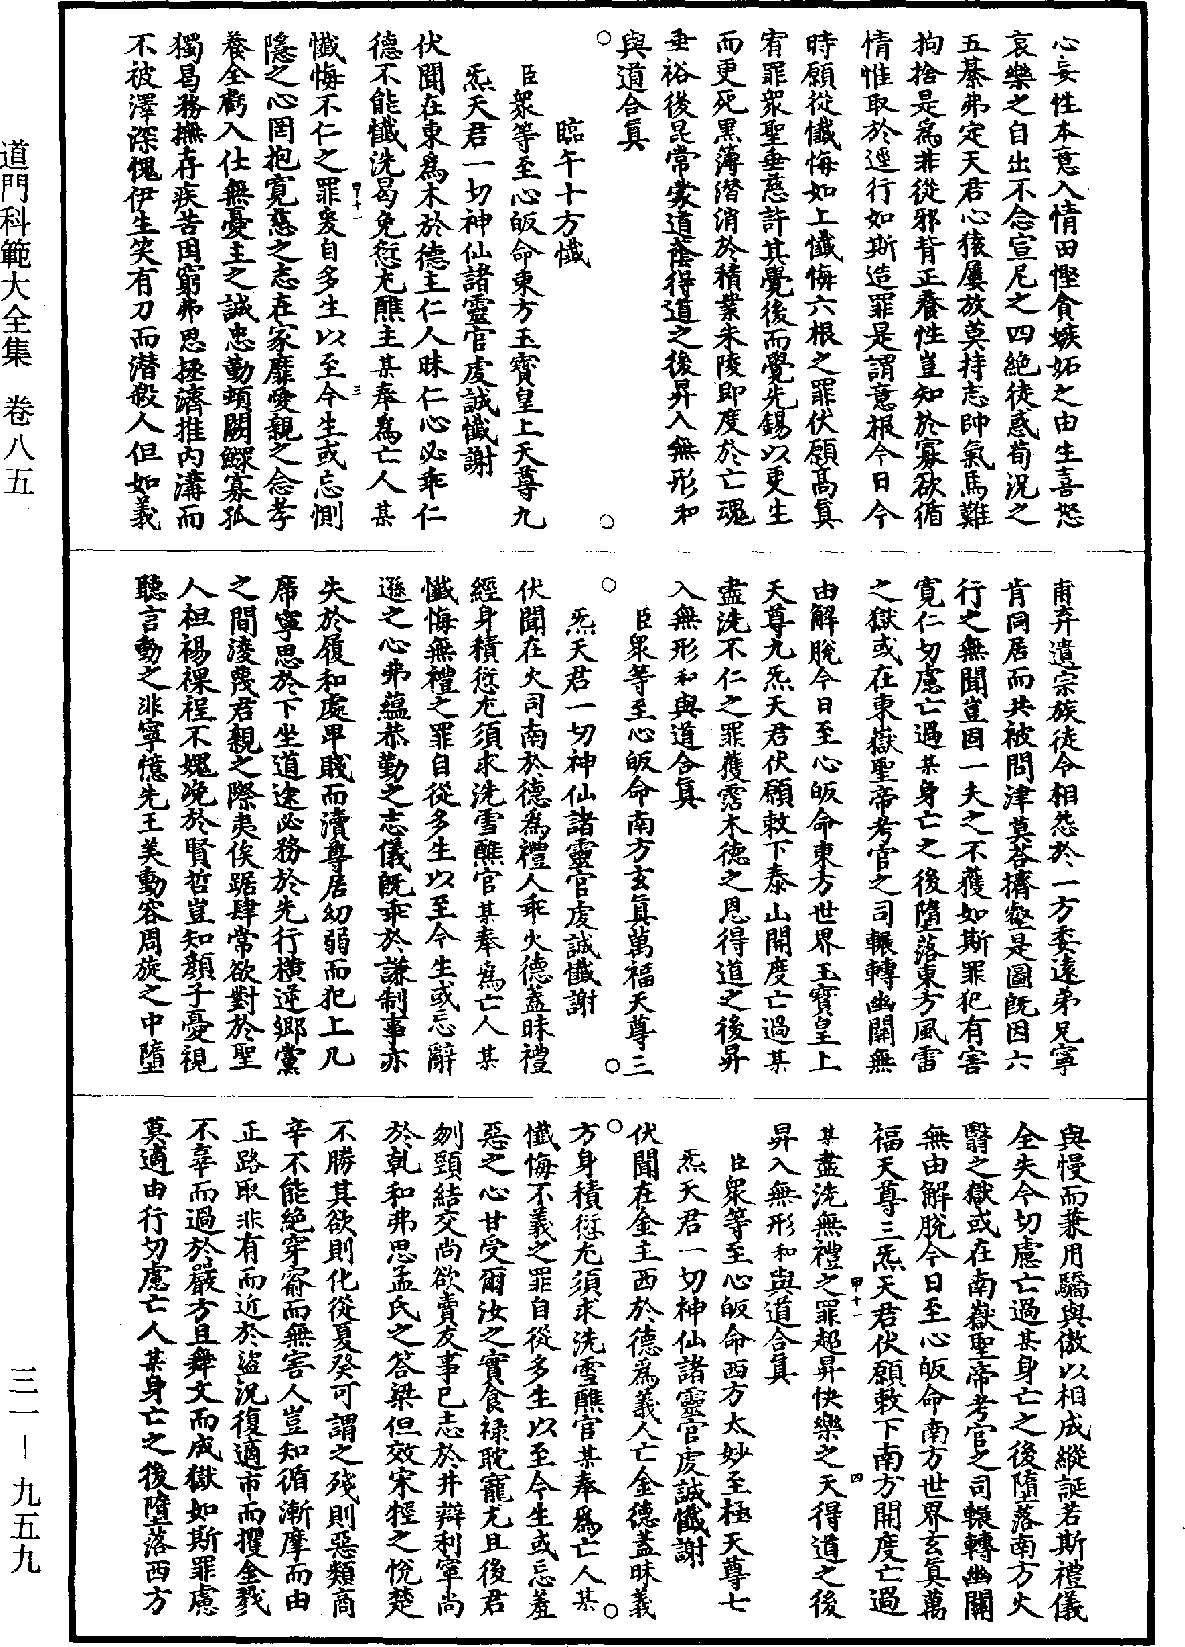 道門科範大全集　卷八五
心妄性本意入情田慳貪嫉妬之由生喜怒
哀樂之自出不念宣尼之四絶徒惑荀況之
五綦弗定天君心猿屢放莫持志帥氣馬難
拘捨是爲非從邪背正養性豈知於寡欲循
情惟取於逕行如斯造罪是謂意根今日今
時願從懺悔如上懺悔六根之罪伏願髙真
宥罪衆聖垂慈許其覺後而覺先錫以更生
而更死黒薄潛消於積業朱陵即度於亡魂
垂裕後昆常蒙道蔭得道之後昇入無形和
與道合真
○　○
臨午十方懺
臣衆等至心皈命東方玉寳皇上天尊九
炁天君一切神仙諸靈官虔誠懺謝
伏聞在東爲木於德主仁人昧仁心必乖仁
德不能懺洗曷免愆尤醮主某奉爲亡人某
懺悔不仁之罪爰自多生以至今生或忘惻
甲十一　三
隱之心罔抱寬慈之志在家靡愛親之念孝
養全虧入仕無憂主之誠忠勤頓闕鰥寡孤
獨曷務撫存疾苦困窮弗思拯濟推内溝而
不被澤深愧伊生笑有刀而潛殺人但如義
甫弃遺宗族徒令相怨於一方委遠弟兄寧
肯同居而共被問津莫荅擠壑是圖旣因六
行之無聞豈因一夫之不獲如斯罪犯有害
寬仁切慮亡過某身亡之後墮落東方風雷
之獄或在東嶽聖帝考官之司輾轉幽關無
由解脫今日至心皈命東方世界玉寳皇上
天尊九炁天君伏願敕下泰山開度亡過某
盡洗不仁之罪獲霑木德之恩得道之後昇
入無形和與道合真
○　○
臣衆等至心皈命南方玄真萬福天尊三
炁天君一切神仙諸靈官虔誠懺謝
伏聞在火司南於德爲禮人乖火德蓋昧禮
經身積愆尤須求洗雪醮官某奉爲亡人某
懺悔無禮之罪自從多生以至今生或忘辭
遜之心弗蘊恭勤之志儀旣乖於謙制事亦
失於履和處甲賤而瀆尊居幼弱而犯上凡
席寧思於下坐道途必務於先行橫逆鄉黨
之間淩蔑君親之際夷俟踞肆常欲對於聖
人袒裼裸裎不媿凂於賢哲豈知顔子憂視
聽言動之非寧憶先王美動容周旋之中墮
與慢而兼用驕與傲以相成縱誕若斯禮儀
全失今切慮亡過某身亡之後墮落南方火
翳之獄或在南嶽聖帝考官之司輾轉幽關
無由解脫今日至心皈命南方世界玄真萬
福天尊三炁天君伏願敕下南方開度亡過
某盡洗無禮之罪超昇快樂之天得道之後
甲十一　四
昇入無形和與道合真
臣衆等至心皈命西方太妙至極天尊七
炁天君一切神仙諸靈官虔誠懺謝
○　○
伏聞在金主西於德爲義人亡金德蓋昧義
方身積愆尤須求洗雪醮官某奉爲亡人某
懺悔不義之罪自從多生以至今生或忘羞
惡之心甘受爾汝之實食禄耽寵尤且後君
刎頸結交尚欲賣友事已志於井辯利寧尚
於乹和弗思孟氏之答梁但效宋牼之悅楚
不勝其欲則化從夏癸可謂之殘則惡類商
辛不能絶穿窬而無害人豈知循漸摩而由
正路取非有而近於盜況復適市而攫金戮
不辜而過於嚴方且舜文而成獄如斯罪慮
莫適由行切慮亡人某身亡之後墮落西方
三一—九五九